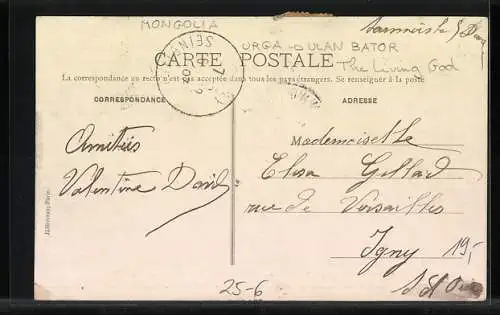 MONGOLIA
URGA - ULAN BATOR
CARTE POSTALE
The Living God
La correspondance au recto n'est pas acceptée dans tous les pays étrangers. Se renseigner à la poste
CORRESPONDANCE
ADRESSE
Amitiés
Valentine David
Mademoiselle
Elisa Gillard
rue de Versailles
Igny
19,-
S et Oise
25-6